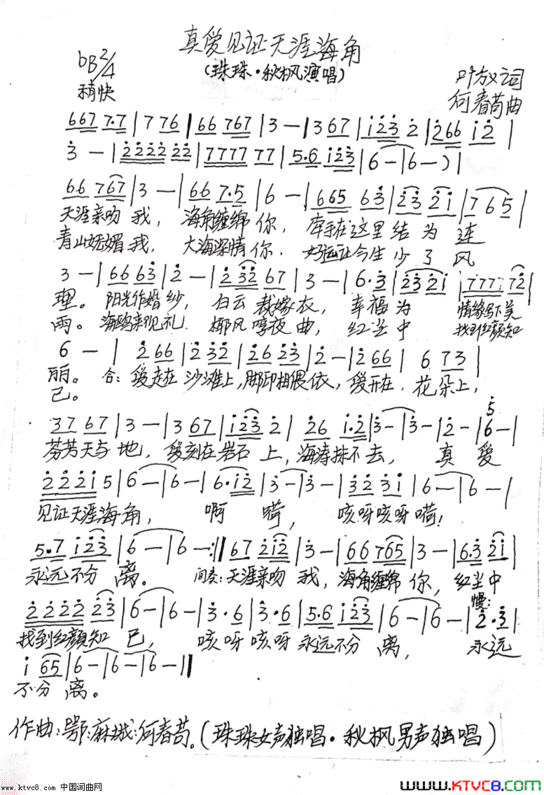 真爱见证天涯海角
(珠珠·秋枫演唱)
bB2/4
稍快
叶放词
何春苟曲
667 7·7 | 776 | 66 767 | 3 — | 367 | i23 2 | 266 i2 |
3 — | 2222 22 | 7777 77 | 5·6 i23 | 6 — | 6 — ) |
66 767 | 3 — | 66 7·5 | 6 — | 665 63 | 23 2i | 765 |
天涯亲吻我, 海角缠绵你, 牵手在这里结为连
青山妩媚我, 大海深情你, 好运让今生少了风
3 — | 66 63 | 2 — | 232 67 | 3 — | 6·3 | 23 2i | 777 72 |
理。阳光作婚纱, 白云裁嫁衣, 幸福为情缘留下美
雨。海鸥来见礼, 椰风哼夜曲, 红尘中找到红颜知
6 — | 266 | 232 | 26 23 | 2 — | 266 | 6 73 |
丽。合:爱走在沙滩上,脚印相偎依,爱开在花朵上,
己。
37 67 | 3 — | 367 | i23 2 | 26 i·2 | 3 — | 3 — | 2 — | 6 — |
芬芳天与地, 爱刻在岩石上, 海涛抹不去, 真爱
222i 5 | 6 — | 6·i2 | 3 — | 3 — | 32 3i | 6 — | 6 — |
见证天涯海角, 啊嗬, 咳呀咳呀嗬!
5·7 i23 | 6 — | 6 — :‖ 67 2i2 | 3 — | 66 765 | 3 — | 6·3 2i |
永远不分离。 间奏:天涯亲吻我,海角缠绵你,红尘中
慢
2222 23 | 6 — | 6 — | 3·6 | 3·6 | 5·6 i23 | 6 — | 6 — | 2·3 |
找到红颜知己, 咳呀咳呀永远不分离, 永远
i 65 | 6 — | 6 — | 6 — ‖
不分离。
作曲:鄂:麻城:何春苟。(珠珠女声独唱·秋枫男声独唱)
www.ktvc8.com 中国词曲网
WWW.KTVC8.COM